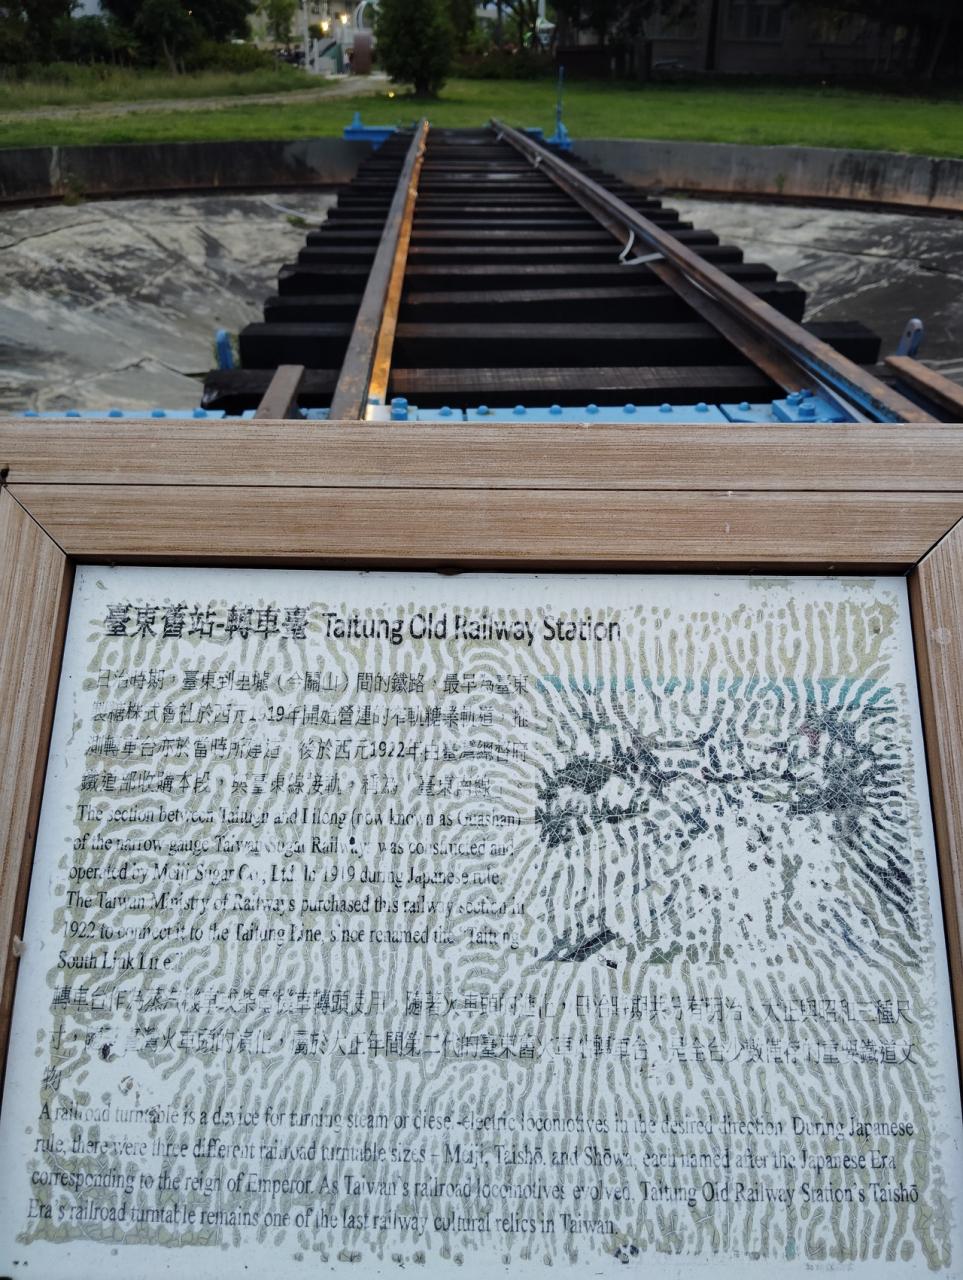 臺東舊站-轉車臺 Taitung Old Railway Station
日治時期，臺東到里壠（今關山）間的鐵路，最早為臺東
製糖株式會社於西元1919年開始營運的窄軌糖業軌道，推
測轉車台亦於當時所建造，後於西元1922年由臺灣總督府
鐵道部收購本段，與臺東線接軌，稱為
The section between Taitung and Lilong (now known as Guashan)
of the narrow-gauge Taiwan Sugar Railways was constructed and
operated by Meiji Sugar Co., Ltd. In 1919 during Japanese rule.
The Taiwan Ministry of Railways purchased this railway section in
1922 to connect it to the Taitung Line, since renamed the "Taitung
South Link Line".
轉車台作為蒸汽機車或柴電機車轉頭使用，隨著火車頭的進化，日治時期共分有明治、大正與昭和三種尺
寸，火車頭的演化，屬於大正年間第二代的臺東舊火車站轉車台，是全台少數僅存的重要鐵道文
物
A railroad turntable is a device for turning steam or diesel-electric locomotives in the desired direction. During Japanese
rule, there were three different railroad turntable sizes – Meiji, Taishō, and Shōwa, each named after the Japanese Era
corresponding to the reign of Emperor. As Taiwan's railroad locomotives evolved, Taitung Old Railway Station's Taishō
Era's railroad turntable remains one of the last railway cultural relics in Taiwan.